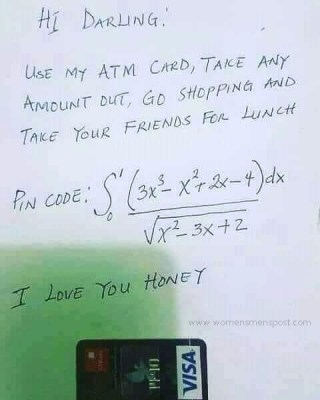 Hi DARLING!
USE MY ATM CARD, TAKE ANY
AMOUNT OUT, GO SHOPPING AND
TAKE YOUR FRIENDS FOR LUNCH
PIN CODE: ∫₀¹ (3x³ - x² + 2x - 4)dx / √(x² - 3x + 2)
I LOVE YOU HONEY
www.womensmenspost.com
VISA